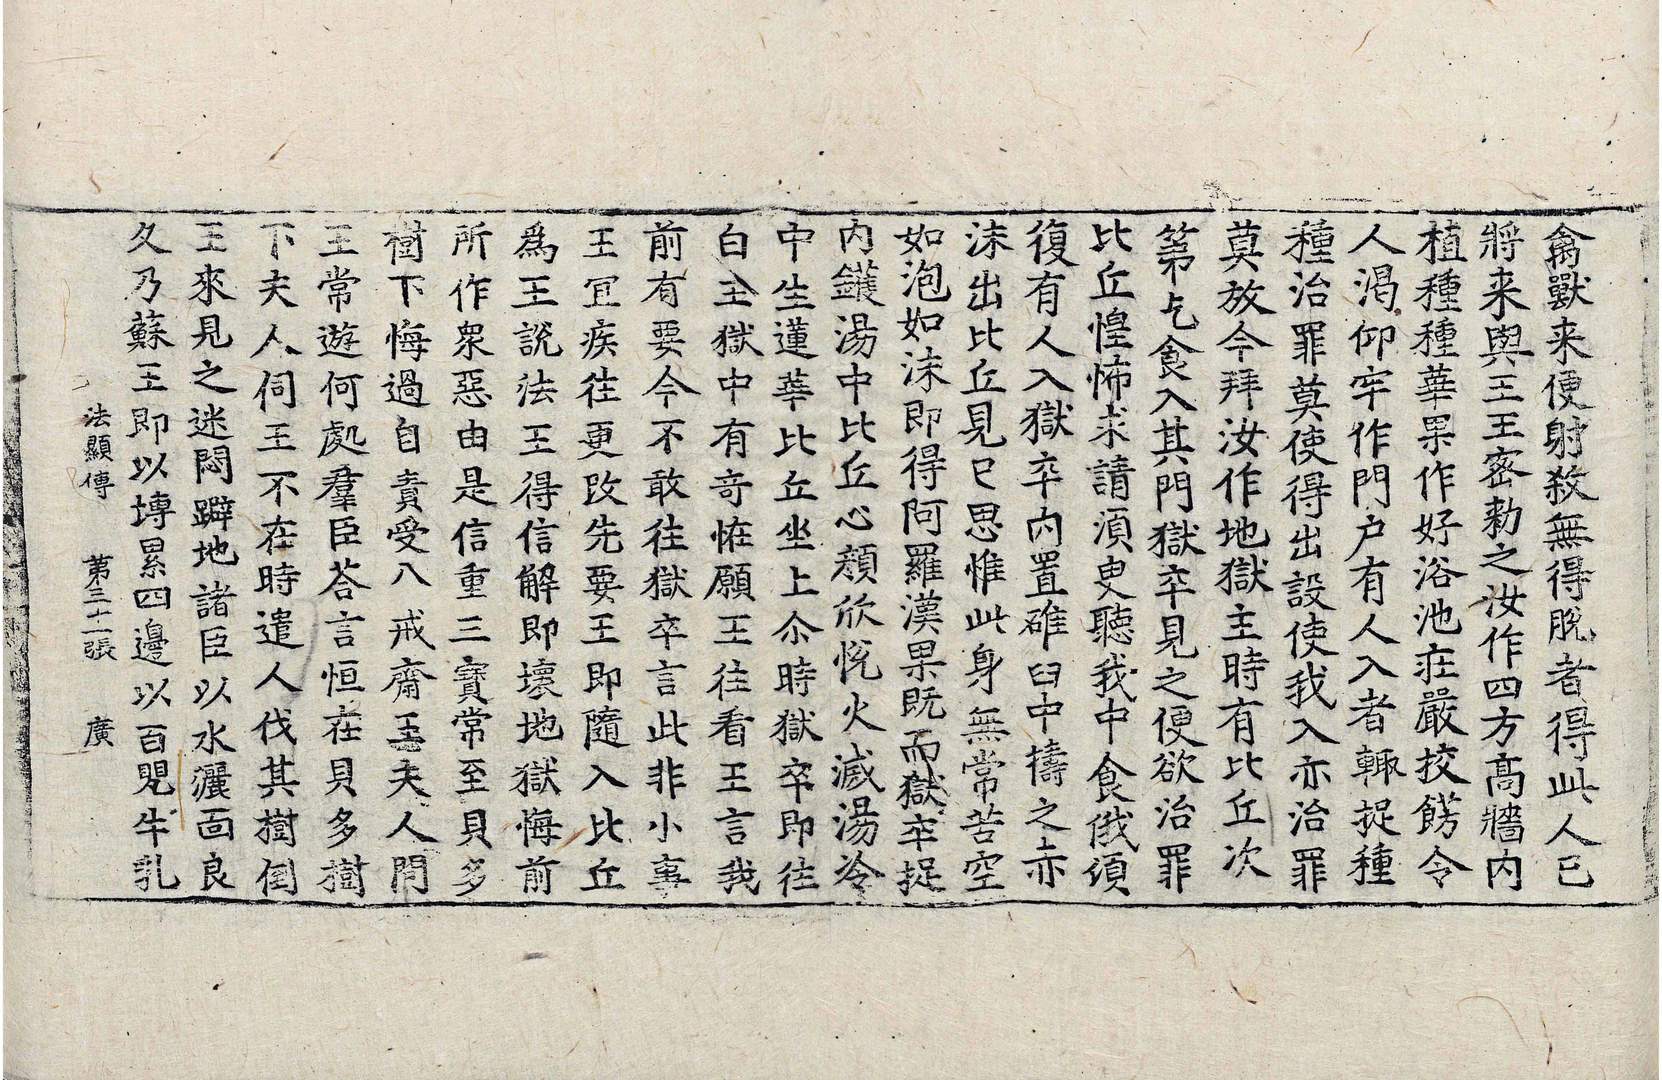 禽獸来便射殺無得脫者得此人已
將来與王王密勑之汝作四方高牆内
植種種華果作好浴池莊嚴挍餝令
人渴仰牢作門户有人入者輙捉種
種治罪莫使得出設使我入亦治罪
莫放今拜汝作地獄主時有比丘次
第乞食入其門獄卒見之便欲治罪
比丘惶怖求請湏㬰聽我中食俄頃
復有人入獄卒内置碓臼中擣之赤
沫出比丘見已思惟此身無常苦空
如泡如沫即得阿羅漢果既而獄卒捉
内鑊湯中比丘心顔欣恱火滅湯冷
中生蓮華比丘坐上尒時獄卒即往
白王獄中有竒恠願王往看王言我
前有要今不敢往獄卒言此非小事
王冝疾往更改先要王即隨入比丘
爲王說法王得信解即壞地獄悔前
所作衆惡由是信重三寶常至貝多
樹下悔過自責受八戒齋王夫人問
王常遊何處羣臣荅言恒在貝多樹
下夫人伺王不在時遣人伐其樹倒
王來見之迷悶躃地諸臣以水灑面良
久乃蘇王即以塼累四邊以百甖牛乳
法顯傳 第三十二張 廣